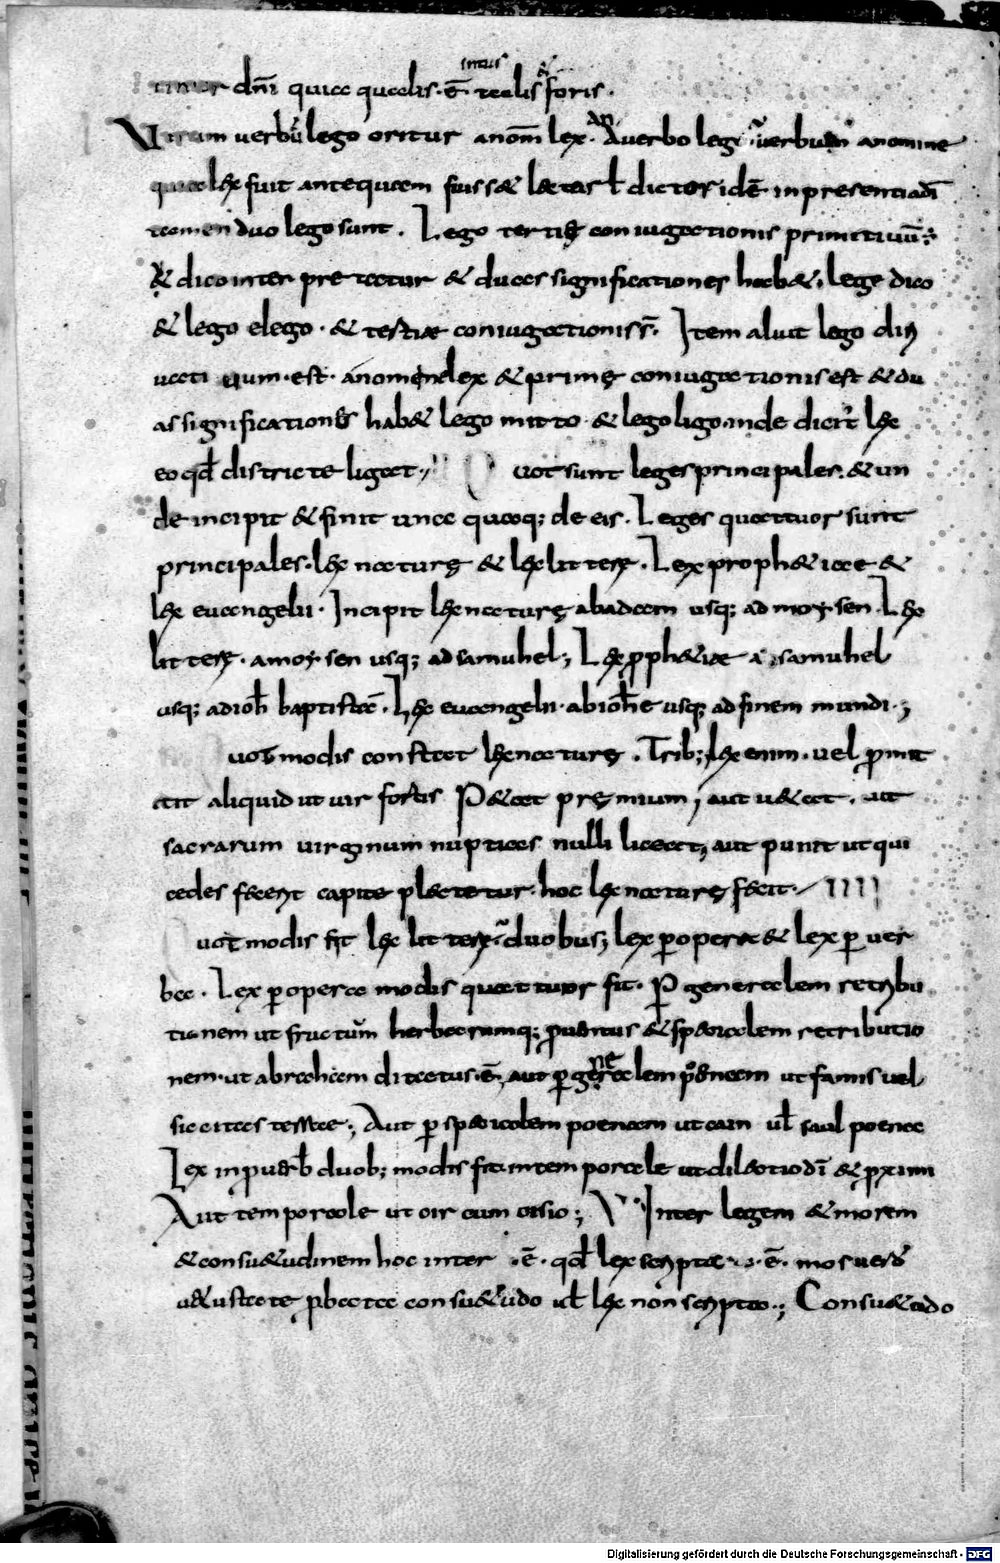 timor dni quia qualis · ē intus talis & foris ·
Utrum uerbū lego oritur anom̄ lex · An auerbo lege uerbum anomine
quia lex fuit antequam fuissæ læctaꝛ ł dictor idē inpresentiadī
tamen duo lego sunt . Lego tertię coniugationis primitiuū ;
& dico inter pretatur & duas significationes habæ , lege dico
& lego elego · & tertiæ coniugationis s̄ · Item aluit lego diri
uati uum · est · anomene lex & primę coniugationis est & du
as significationes habæ lego mitto & lego ligo inde dicit̄ lex
eo qd̄ districte ligat · uot sunt leges principales · & un
de incipit & finit una quaq; de eis . Leges quattuor sunt
principales · lex naturę & lex litterę . Lex prophætiae &
lex euangelii · Incipit lex naturę abadam usq; ad moysen . Lex
litterę · amoysen usq; ad samuhel ; Lex p̱phætiae a samuhel
usq; ad ioh̄ baptistā . Lex euangelii · ab ioh̄e usq; ad finem mundi ;
uot modis constat lex naturę . Trib; lex enim · uel ꝓmit
tit aliquid ut uir fortis Pætat pręmium , aut uætat , ut
sacrarum uirginum nuptias nulli liceat , aut punit ut qui
cedes fecerit capite plectetur · hoc lex naturę fecit · IIII
uot modis fit lex litterę duobus ; lex ꝑ opera & lex ꝑ uer
ba . Lex ꝑ opera modis quattuor fit · ꝑ generalem retribu
tionem ut fructum herbarumq; ꝓuentus & specialem retributio
nem · ut abraham ditatus · ē , aut ꝑ generalem poenam ut famis uel
siccitas testate ; Aut ꝑ specialem poenam ut cain uł saul poena
Lex inpuerb̄ duob; modis fit intemporale ut dilectio dī & ꝓximi
Aut temporale ut circumcisio ; Inter legem & morem
& consuætudinem hoc inter · ē · qd̄ lex scripta · ē · mos uero
uætustate ꝓbata consuætudo uł lex non scripta ; Consuætudo
Digitalisierung gefördert durch die Deutsche Forschungsgemeinschaft - DFG